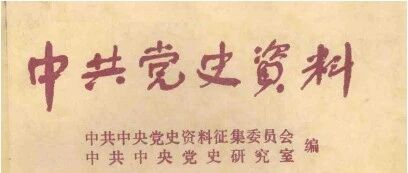 中共党史資料
中共中央党史资料征集委员会
中共中央党史研究室
编